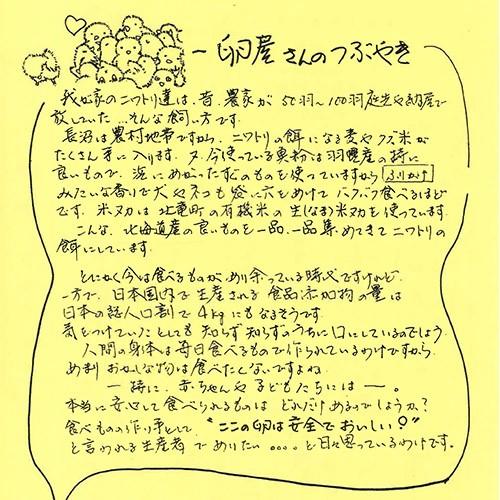 一卵屋さんのつぶやき
我が家のニワトリ達は、昔、農家が50羽〜100羽庭先や納屋で
放していた…そんな飼い方です。
長沼は農村地帯ですから、ニワトリの餌になる麦やクズ米が
たくさん手に入ります。又、今使っている魚粉は羽幌産の特に
良いもので、浜にあがったすぐのものを使っていますから ふりかけ
みたいな香りで犬やネコも袋に穴をあけて バクバク食べるほど
です。米ヌカは北竜町の有機米の生(なま)米ヌカを使っています。
こんな、北海道産の良いものを一品、一品集めてきてニワトリの
餌にしています。
とにかく今は食べるものがあり余っている時代ですけれど、
一方で、日本国内で生産される食品添加物の量は
日本の総人口割で4kgにもなるそうです。
気をつけていたとしても知らず知らずのうちに口にしているのでしょう。
人間の身体は毎日食べるもので作られているわけですから
あまりおかしな物は食べたくないですよね
ー特に、赤ちゃんや子どもたちにはー。
本当に安心して食べられるものは どれだけあるのでしょうか?
食べもの の作り手として、"ここの卵は安全でおいしい!"
と言われる生産者でありたい。。。。と日々思っているわけです。